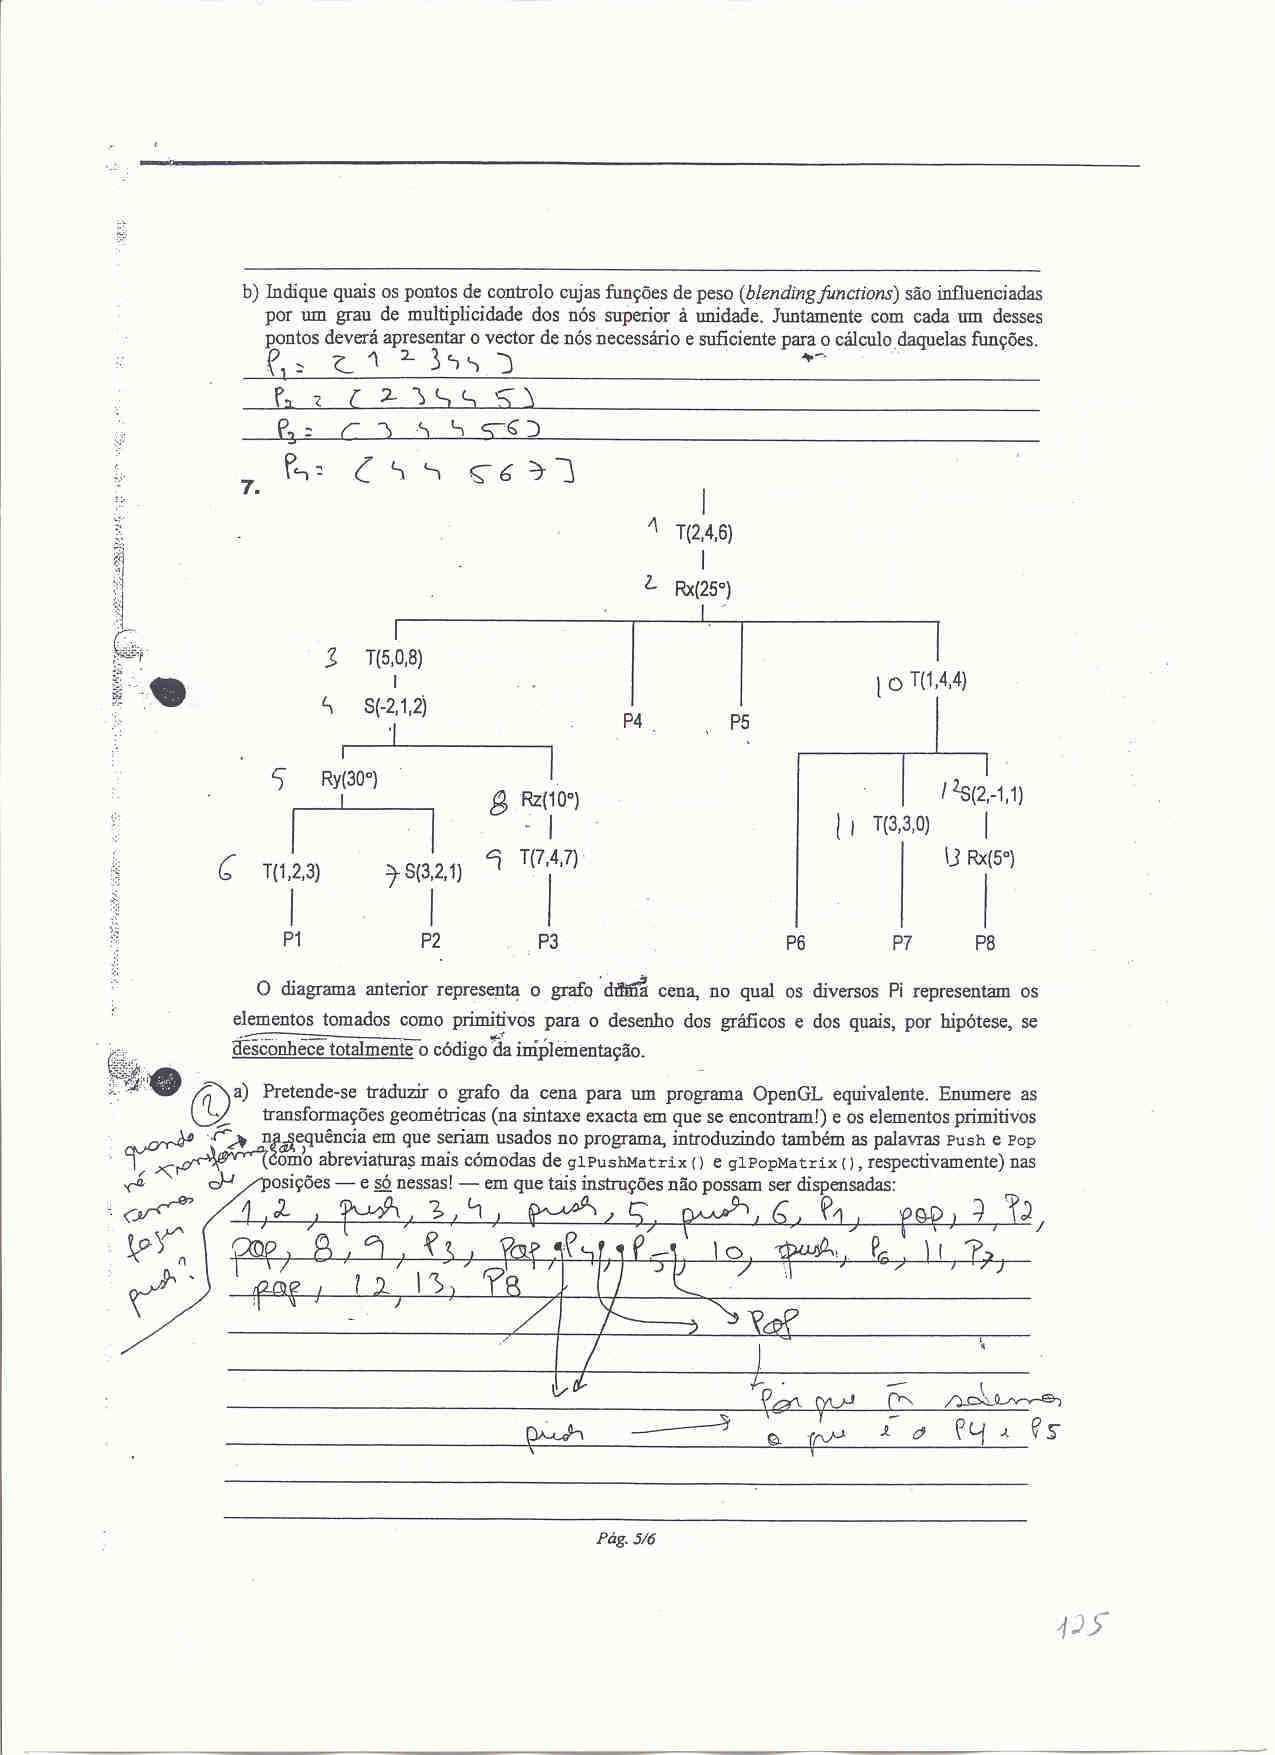 b) Indique quais os pontos de controlo cujas funções de peso (blending functions) são influenciadas
por um grau de multiplicidade dos nós superior à unidade. Juntamente com cada um desses
pontos deverá apresentar o vector de nós necessário e suficiente para o cálculo daquelas funções.
P1 = [ 1 2 3 4 4 ]
P2 = [ 2 3 4 4 5 ]
P3 = [ 3 4 4 5 6 ]
P4 = [ 4 4 5 6 7 ]
7.
1 T(2,4,6)
2 Rx(25º)
3 T(5,0,8)
10 T(1,4,4)
4 S(-2,1,2)
P4 P5
5 Ry(30º)
8 Rz(10º)
12 S(2,-1,1)
11 T(3,3,0)
6 T(1,2,3) 7 S(3,2,1) 9 T(7,4,7)
13 Rx(5º)
P1 P2 P3 P6 P7 P8
O diagrama anterior representa o grafo duma cena, no qual os diversos Pi representam os
elementos tomados como primitivos para o desenho dos gráficos e dos quais, por hipótese, se
desconhece totalmente o código da implementação.
a) Pretende-se traduzir o grafo da cena para um programa OpenGL equivalente. Enumere as
transformações geométricas (na sintaxe exacta em que se encontram!) e os elementos primitivos
na sequência em que seriam usados no programa, introduzindo também as palavras Push e Pop
(como abreviaturas mais cómodas de glPushMatrix() e glPopMatrix(), respectivamente) nas
posições — e só nessas! — em que tais instruções não possam ser dispensadas:
quando ñ
há transformações,
temos de
fazer
push?
1,2, push, 3,4, push, 5, push, 6, P1, pop, 7, P2,
pop, 8, 9, P3, Pop, P4, P5, 10, push, P6, 11, P7,
pop, 12, 13, P8
Pop
Por que ñ sabemos
push o que é o P4 e P5
Pág. 5/6
125